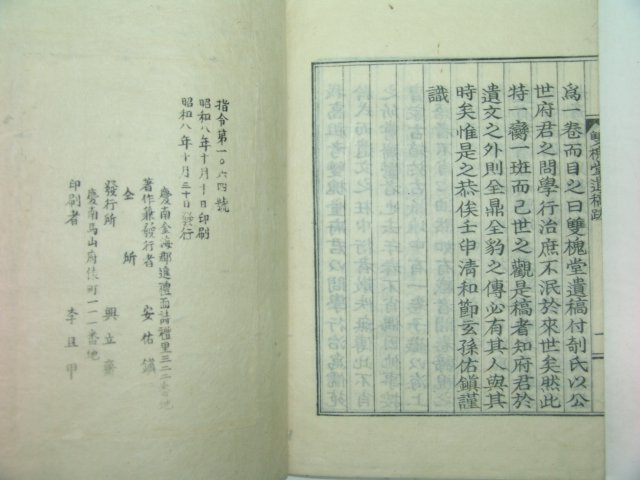 爲一卷而目之曰雙槐堂遺稿付剞氏以公
世府君之問學行治庶不泯於來世矣然此
特一臠一班而已世之觀是稿者知府君於
遺文之外則全鼎全豹之傳必有其人與其
時矣惟是之恭俟壬申淸和節玄孫佑鎭謹
識
雙槐堂遺稿跋
指令第一〇六四號
昭和八年十月十日印刷
昭和八年十月三十日發行
慶南金海郡進禮面詩禮里三二二番地
著作兼發行者 安佑鎭
仝所
發行所 興立齋
慶南馬山府俵町一一一番地
印刷者 李且甲